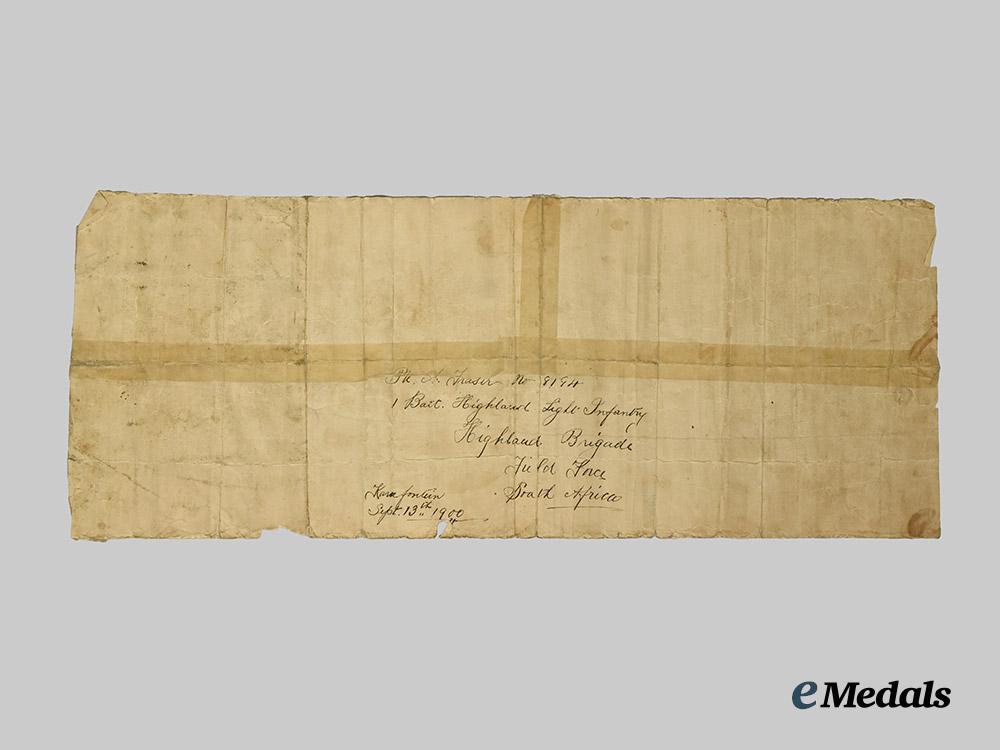 Pte. A. Fraser No 8194
1 Batt. Highland Light Infantry
Highland Brigade
Field Force
South Africa
Sept. 13th 1900
eMedals